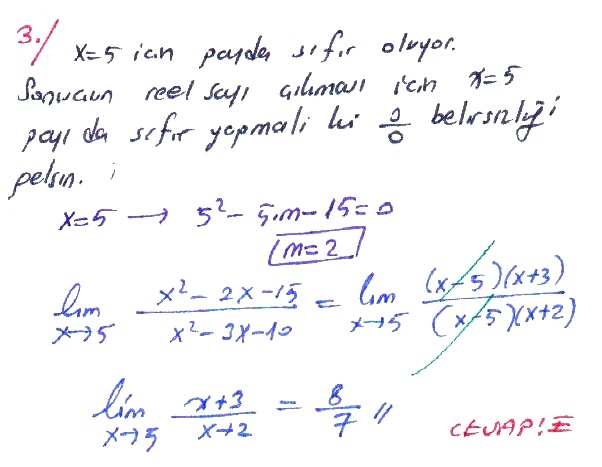 3./ x=5 için payda sıfır oluyor.
Sonucun reel sayı çıkması için x=5
payı da sıfır yapmalı ki 0/0 belirsizliği
gelsin.
x=5 → 5² - 5.m - 15 = 0
m=2
lim x→5 (x² - 2x - 15)/(x² - 3x - 10) = lim x→5 (x-5)(x+3)/(x-5)(x+2)
lim x→5 (x+3)/(x+2) = 8/7 //
CEVAP: E